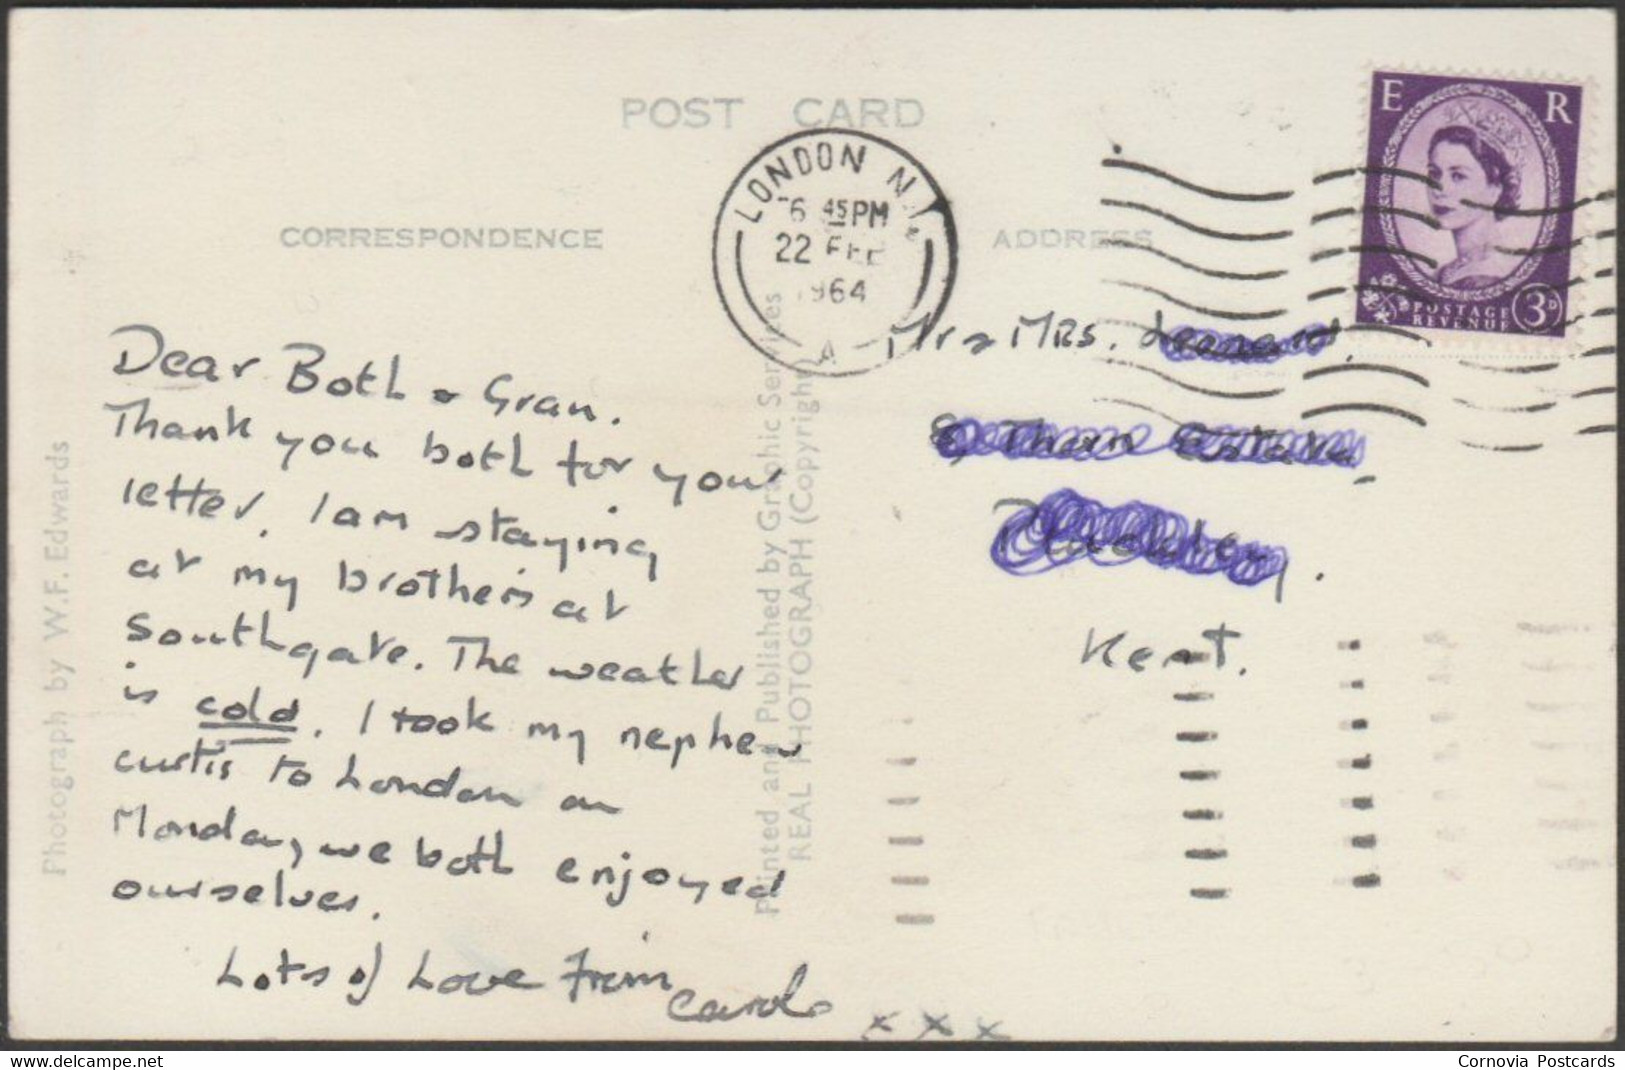 POST CARD
CORRESPONDENCE
ADDRESS
LONDON N.
6 45 PM
22 FEB
1964
A
E R
POSTAGE
REVENUE
3D
Dear Both & Gran.
Thank you both for your
letter. I am staying
at my brothers at
Southgate. The weather
is cold. I took my nephew
curtis to London on
Monday, we both enjoyed
ourselves.
Lots of Love from
Carol
x x x
Mr & MRS.
Kent.
Photograph by W.F. Edwards
Printed and Published by Graphic Services
REAL PHOTOGRAPH (Copyright)
www.delcampe.net
Cornovia Postcards